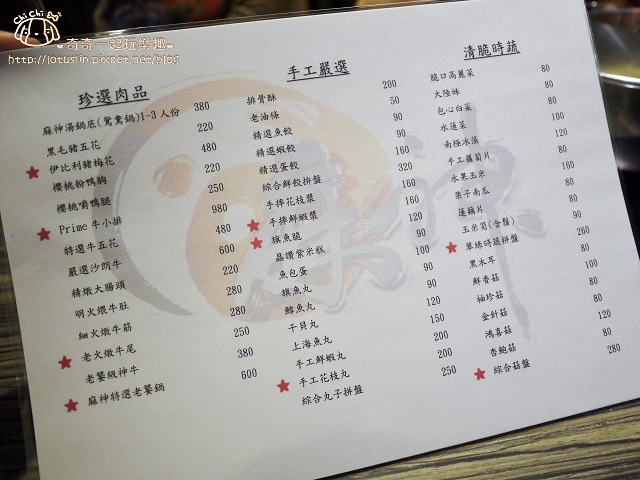 Chi Chi
♥奇奇一起玩樂趣♥
http://lotusin.pixnet.net/blog
珍選肉品
麻神湯鍋底(鴛鴦鍋)1-3人份 380
黑毛豬五花 220
★ 伊比利豬梅花 480
櫻桃粉鴨胸 220
櫻桃嚼鴨腿 250
★ Prime牛小排 980
特選牛五花 480
嚴選沙朗牛 600
精燉大腸頭 220
明火煨牛肚 280
細火燉牛筋 280
★ 老火燉牛尾 250
老饕級神牛 380
★ 麻神特選老饕鍋 600
手工嚴選
排骨酥 200
老油條 50
精選魚餃 90
精選蝦餃 90
精選蛋餃 90
綜合鮮餃拼盤 160
手摔花枝漿 160
★ 手摔鮮蝦漿 160
★ 旗魚腿 120
晶讚紫米糕 90
魚包蛋 160
旗魚丸 100
鱈魚丸 90
干貝丸
上海魚丸 150
手工鮮蝦丸 200
★ 手工花枝丸 200
綜合丸子拼盤 250
清脆時蔬
脆口高麗菜 80
大陸妹 80
包心白菜 80
水蓮菜 80
南極冰藻 120
手工蘿蔔片 80
水果玉米 80
栗子南瓜 80
蓮藕片 80
玉米筍(含鬚) 90
★ 翠綠時蔬拼盤 260
黑木耳 80
鮮香菇 100
袖珍菇 80
金針菇 80
鴻喜菇 120
杏鮑菇 80
★ 綜合菇盤 280
麻神